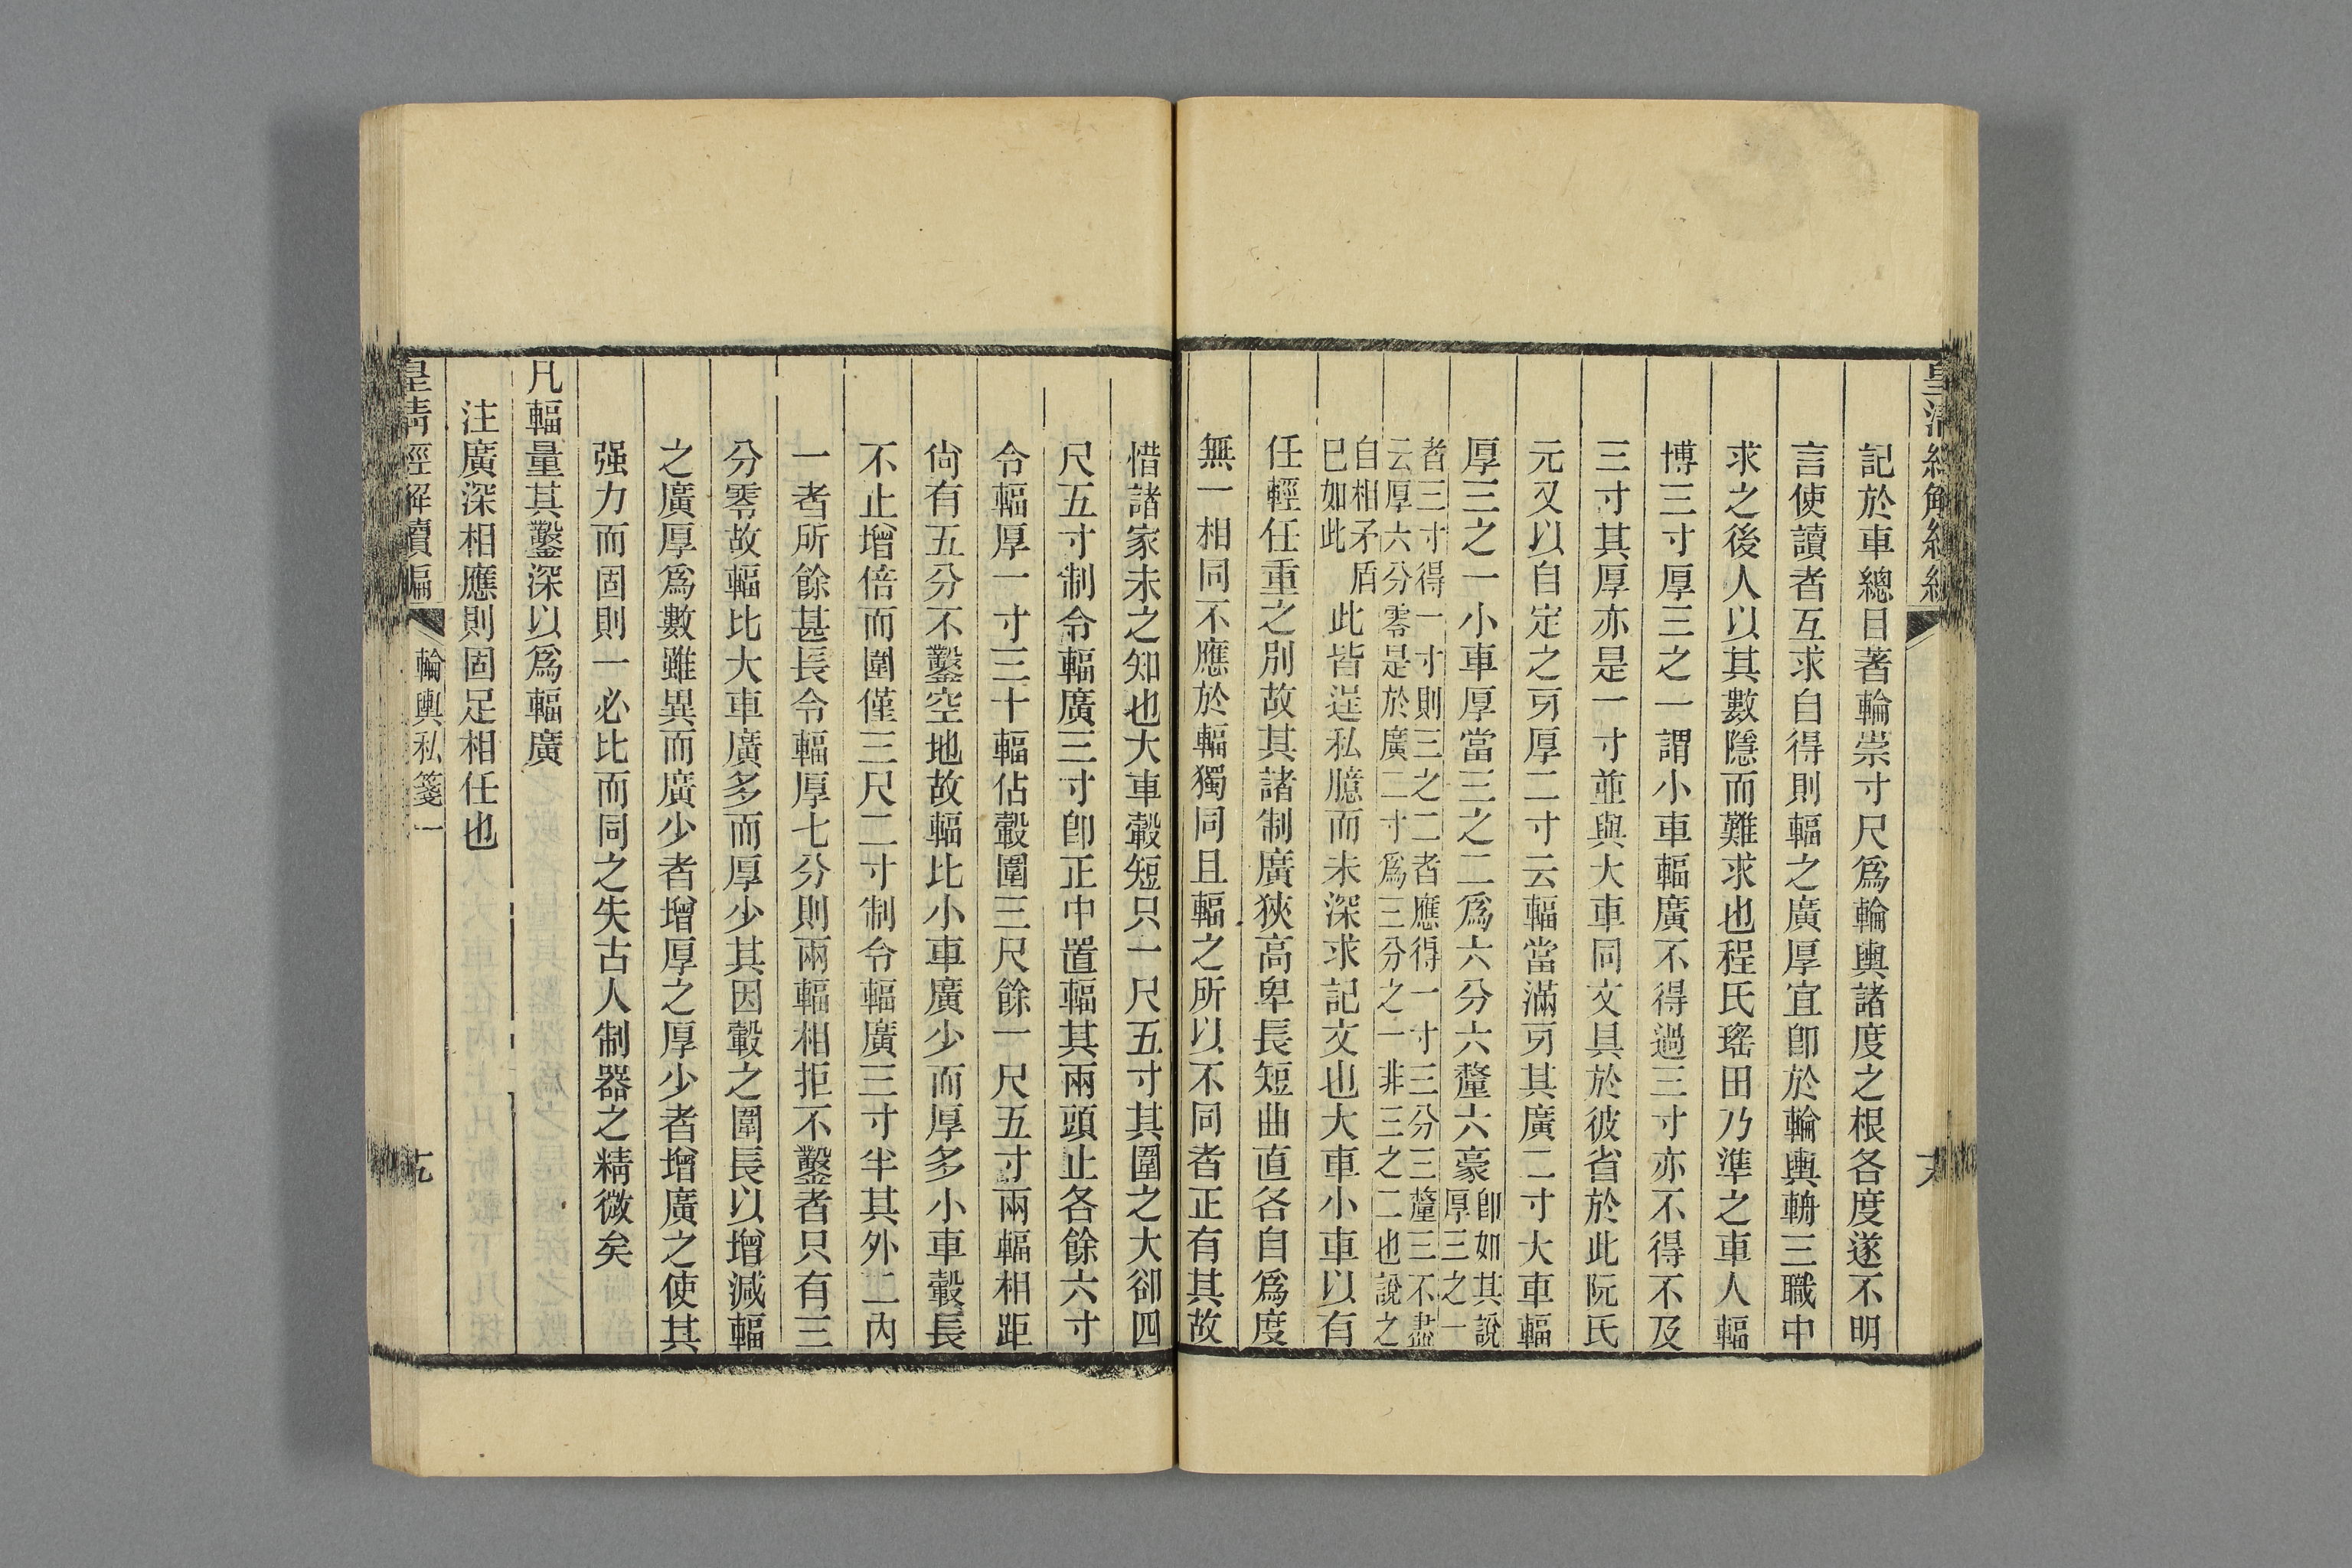 記於車總目著輪崇寸尺爲輪輿諸度之根各度遂不明
言使讀者互求自得則輻之廣厚宜卽於輪輿輈三職中
求之後人以其數隱而難求也程氏瑤田乃準之車人輻
博三寸厚三之一謂小車輻廣不得過三寸亦不得不及
三寸其厚亦是一寸並與大車同文具於彼省於此阮氏
元又以自定之叧厚二寸云輻當滿叧其廣二寸大車輻
厚三之一小車厚當三之二爲六分六釐六豪卽如其說
厚三之一
者三寸得一寸則三之二者應得一寸三分三釐三不盡
云厚六分零是於廣二寸爲三分之一非三之二也說之
自相矛盾
已如此
此皆逞私臆而未深求記文也大車小車以有
任輕任重之別故其諸制廣狹高卑長短曲直各自爲度
無一相同不應於輻獨同且輻之所以不同者正有其故
惜諸家未之知也大車轂短只一尺五寸其圍之大卻四
尺五寸制令輻廣三寸卽正中置輻其兩頭止各餘六寸
令輻厚一寸三十輻佔轂圍三尺餘一尺五寸兩輻相距
尙有五分不鑿空地故輻比小車廣少而厚多小車轂長
不止增倍而圍僅三尺二寸制令輻廣三寸半其外二內
一者所餘甚長令輻厚七分則兩輻相拒不鑿者只有三
分零故輻比大車廣多而厚少其因轂之圍長以增減輻
之廣厚爲數雖異而廣少者增厚之厚少者增廣之使其
强力而固則一必比而同之失古人制器之精微矣
凡輻量其鑿深以爲輻廣
注廣深相應則固足相任也
皇清經解續編
輪輿私箋一